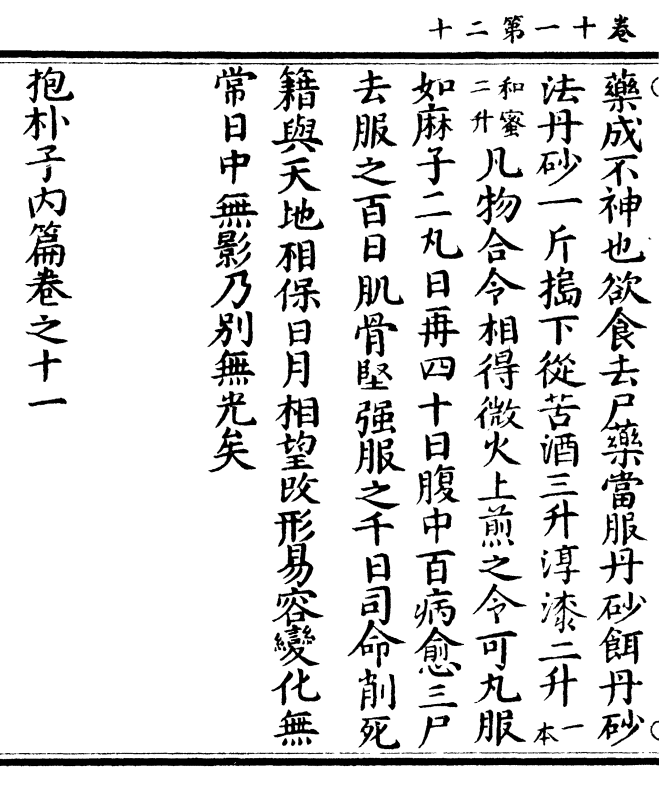 卷十一第二十
藥成不神也欲食去尸藥當服丹砂餌丹砂
法丹砂一斤搗下從苦酒三升淳漆二升一本
和蜜二升凡物合令相得微火上煎之令可丸服
如麻子二丸日再四十日腹中百病愈三尸
去服之百日肌骨堅强服之千日司命削死
籍與天地相保日月相望改形易容變化無
常日中無影乃别無光矣
抱朴子内篇卷之十一